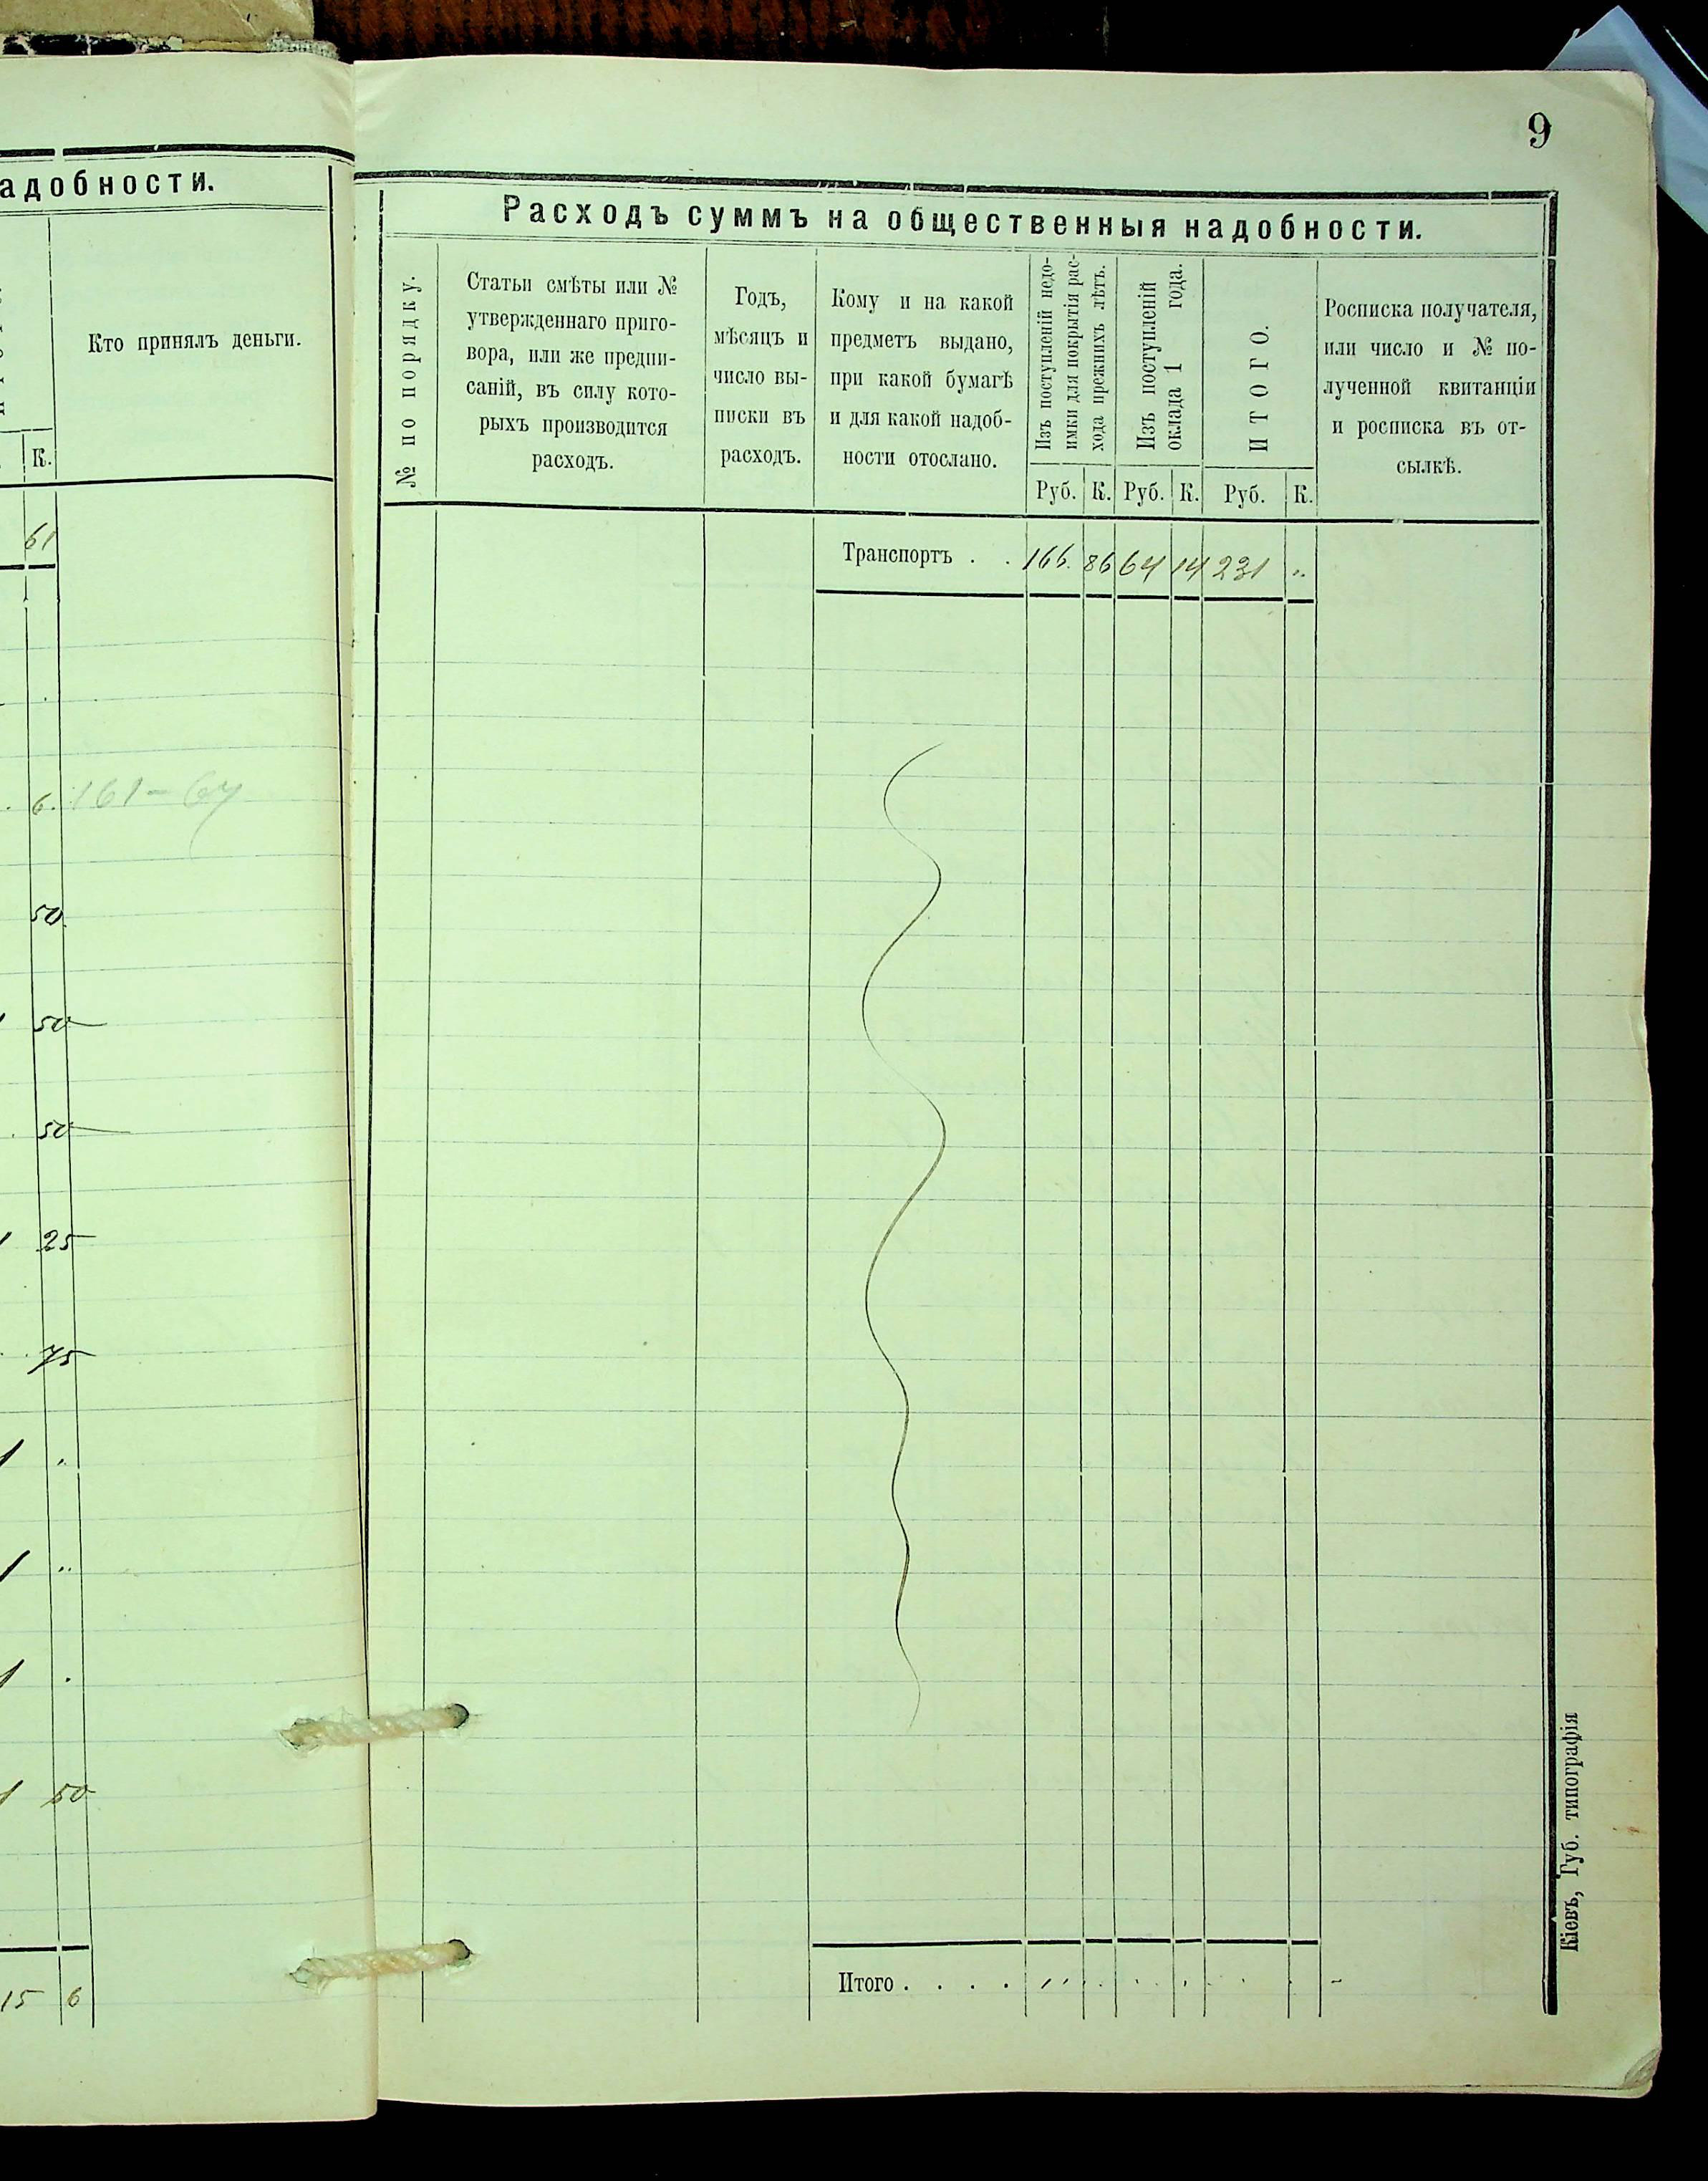 9
адобности.
Кто принялъ деньги.
К.
61
6. 161-64
50
50
50
25
75
50
15 6
Расходъ суммъ на общественныя надобности.
№ по порядку.
Статьи смѣты или №
утвержденнаго приго-
вора, или же предпи-
саній, въ силу кото-
рыхъ производится
расходъ.
Годъ,
мѣсяцъ и
число вы-
писки въ
расходъ.
Кому и на какой
предметъ выдано,
при какой бумагѣ
и для какой надоб-
ности отослано.
Изъ поступленій недо-
имки для покрытія рас-
хода прежнихъ лѣтъ.
Изъ поступленій
оклада 1 года.
ИТОГО.
Росписка получателя,
или число и № по-
лученной квитанціи
и росписка въ от-
сылкѣ.
Руб. К. Руб. К. Руб. К.
Транспортъ . . 166. 86 64 14 231 "
Итого . . . .
Кіевъ, Губ. типографія